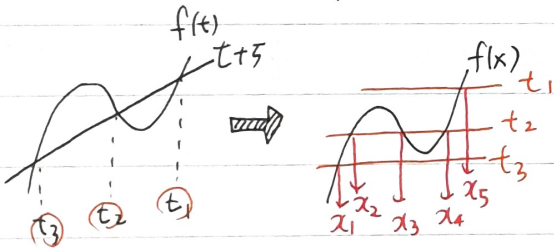 f(t)
t+5
t₃
t₂
t₁
f(x)
t₁
t₂
t₃
x₁
x₂
x₃
x₄
x₅